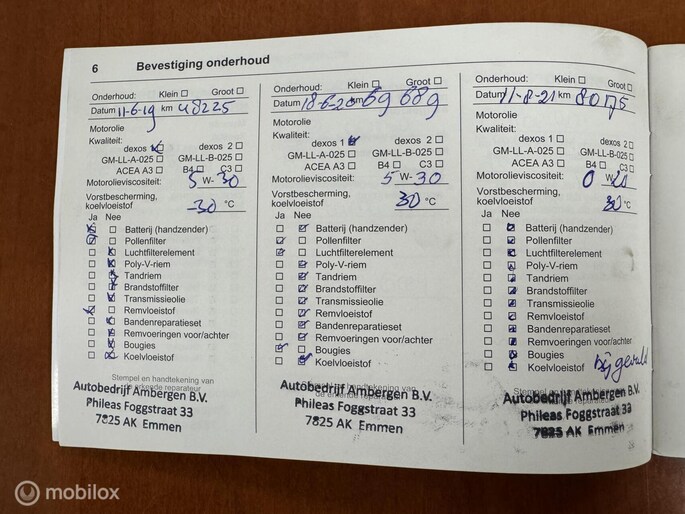 6 Bevestiging onderhoud
Onderhoud: Klein Groot
Datum 11-6-19 km 48225
Motorolie
Kwaliteit:
dexos 1 dexos 2
GM-LL-A-025 GM-LL-B-025
ACEA A3 B4 C3
Motorolieviscositeit: 5 W- 30
Vorstbescherming,
koelvloeistof -30 °C
Ja Nee
Batterij (handzender)
Pollenfilter
Luchtfilterelement
Poly-V-riem
Tandriem
Brandstoffilter
Transmissieolie
Remvloeistof
Bandenreparatieset
Remvoeringen voor/achter
Bougies
Koelvloeistof
Stempel en handtekening van
de erkende reparateur
Autobedrijf Ambergen B.V.
Phileas Foggstraat 33
7825 AK Emmen
Onderhoud: Klein Groot
Datum 18-6-20 km 69689
Motorolie
Kwaliteit:
dexos 1 dexos 2
GM-LL-A-025 GM-LL-B-025
ACEA A3 B4 C3
Motorolieviscositeit: 5 W- 30
Vorstbescherming,
koelvloeistof 30 °C
Ja Nee
Batterij (handzender)
Pollenfilter
Luchtfilterelement
Poly-V-riem
Tandriem
Brandstoffilter
Transmissieolie
Remvloeistof
Bandenreparatieset
Remvoeringen voor/achter
Bougies
Koelvloeistof
Autobedrijf Ambergen B.V.
Phileas Foggstraat 33
7825 AK Emmen
Onderhoud: Klein Groot
Datum 11-8-21 km 80175
Motorolie
Kwaliteit:
dexos 1 dexos 2
GM-LL-A-025 GM-LL-B-025
ACEA A3 B4 C3
Motorolieviscositeit: 0 W-
Vorstbescherming,
koelvloeistof 30 °C
Ja Nee
Batterij (handzender)
Pollenfilter
Luchtfilterelement
Poly-V-riem
Tandriem
Brandstoffilter
Transmissieolie
Remvloeistof
Bandenreparatieset
Remvoeringen voor/achter
Bougies
Koelvloeistof bijgevuld
Autobedrijf Ambergen B.V.
Phileas Foggstraat 33
7825 AK Emmen
mobilox